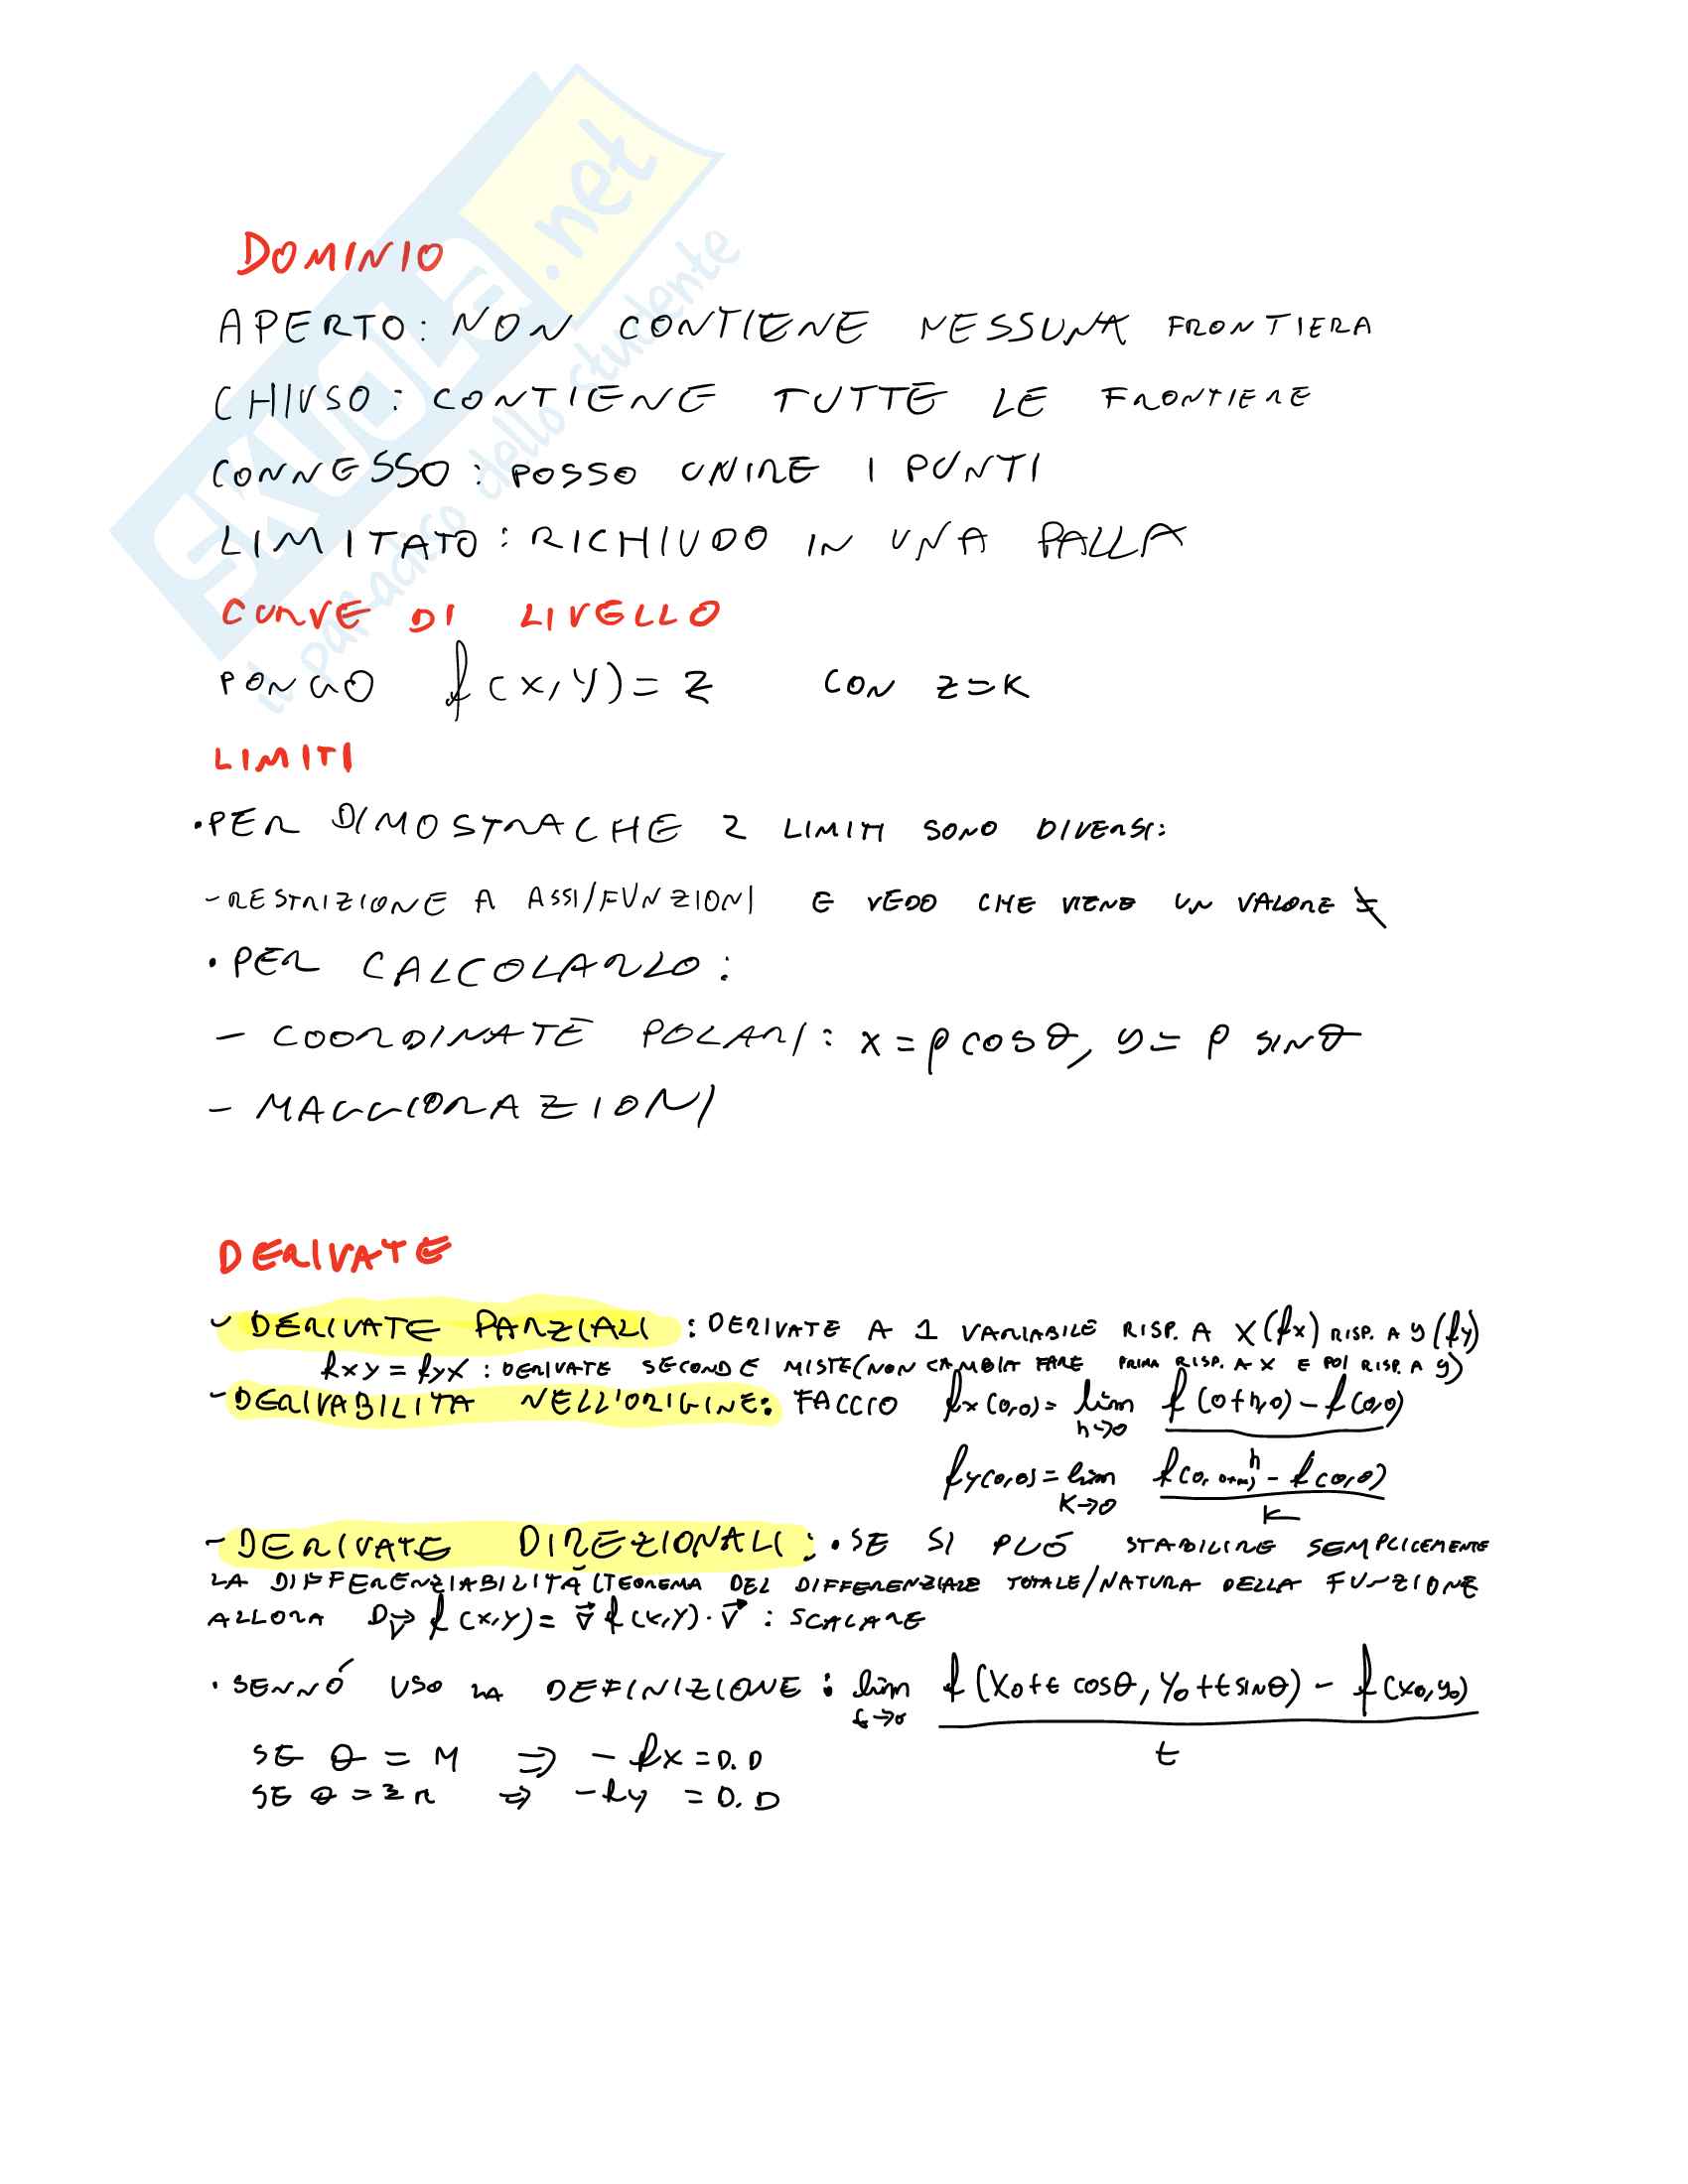 SKUOLA.net
il paradiso dello studente
DOMINIO
APERTO: NON CONTIENE NESSUNA FRONTIERA
CHIUSO: CONTIENE TUTTE LE FRONTIERE
CONNESSO: POSSO UNIRE I PUNTI
LIMITATO: RICHIUDO IN UNA PALLA
CURVE DI LIVELLO
PONGO f(x,y)=z CON z=K
LIMITI
• PER DIMOSTRA CHE 2 LIMITI SONO DIVERSI:
- RESTRIZIONE A ASSI/FUNZIONI E VEDO CHE VIENE UN VALORE ≠
• PER CALCOLARLO:
- COORDINATE POLARI: x=ρ cosθ, y=ρ sinθ
- MAGGIORAZIONI
DERIVATE
- DERIVATE PARZIALI: DERIVATE A 1 VARIABILE RISP. A X (fx) RISP. A y (fy)
fxy = fyx : DERIVATE SECONDE MISTE (NON CAMBIA FARE PRIMA RISP. A X E POI RISP. A y)
- DERIVABILITA NELL'ORIGINE: FACCIO fx(0,0)= lim h→0 f(0+h,0)-f(0,0)
fy(0,0)= lim K→0 f(0, h - f(0,0) / K
- DERIVATE DIREZIONALI: • SE SI PUÓ STABILIRE SEMPLICEMENTE
LA DIFFERENZIABILITÁ (TEOREMA DEL DIFFERENZIALE TOTALE/NATURA DELLA FUNZIONE
ALLORA D_v⃗ f(x,y)= ∇⃗ f(x,y)·v⃗ : SCALARE
• SENNÓ USO LA DEFINIZIONE: lim t→0 f(x₀+t cosθ, y₀+t sinθ) - f(x₀,y₀) / t
SE θ = ⇒ - fx = D.D
SE θ = ⇒ - fy = D.D